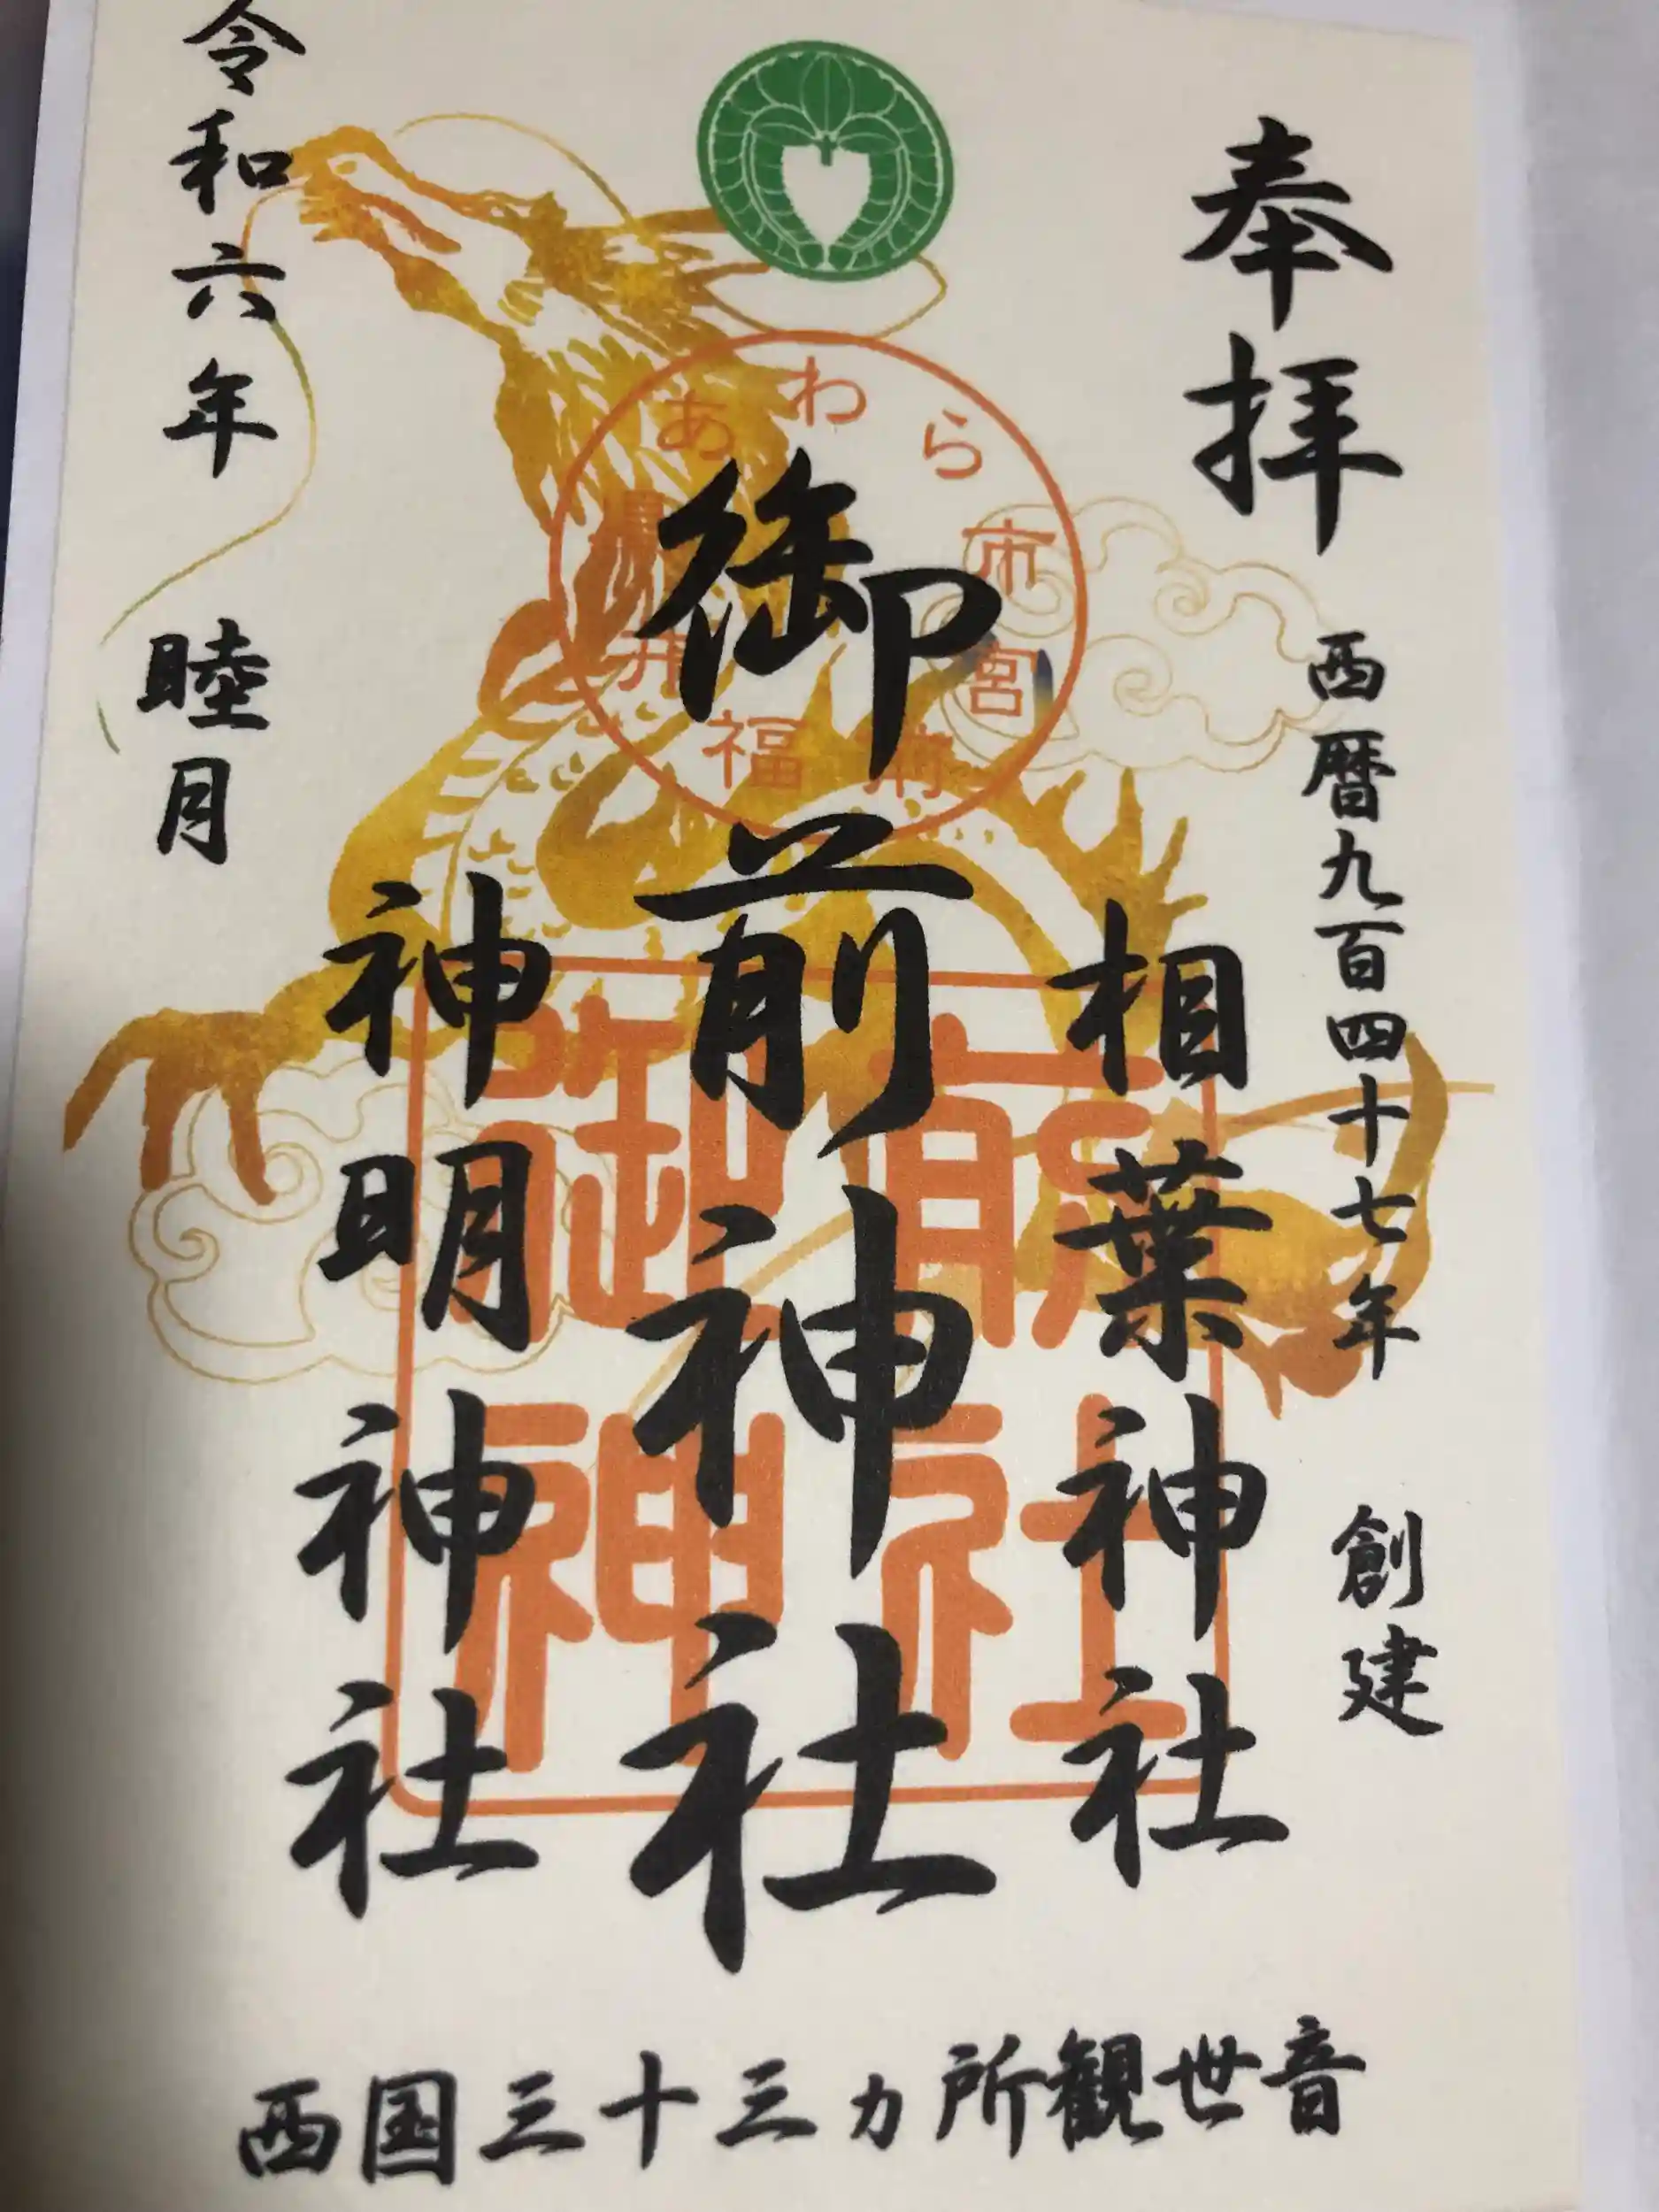 奉拝
西暦九百四十七年 創建
相葉神社
御前神社
神明神社
令和六年 睦月
西国三十三ヵ所観世音
あわら市宮前 福井県
御前
神社